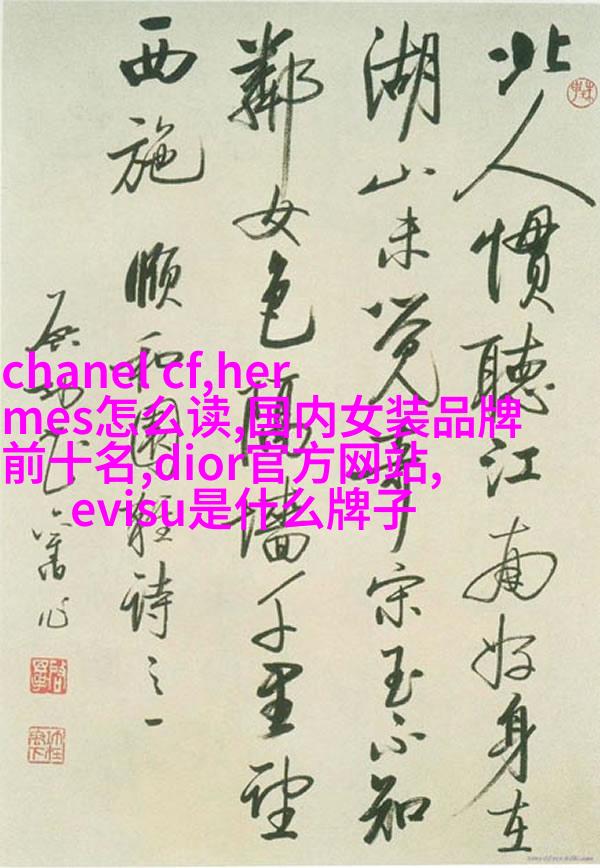 北人慣聽江南好身在
湖山未覺奇宋玉不知
鄰女色墻千里望
西施 頤和園雜詩之一
啟功舊作
chanel cf,her
mes怎么读,国内女装品牌
前十名,dior官方网站,
evisu是什么牌子